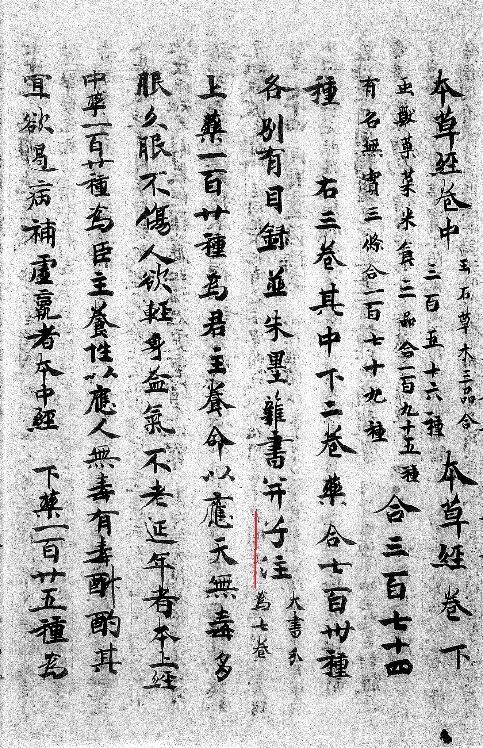 本草經卷中 玉石草木三品合三百五十六種 本草經卷下
虫獸菓菜米食三品合一百九十五種有名無實三條合一百七十九種 合三百七十四
種 右三卷其中下二卷藥合七百卅種
各別有目錄並朱墨雜書并子注 大書分為七卷
上藥一百廿種為君主養命以應天無毒多
服久服不傷人欲輕身益氣不老延年者本上經
中藥一百廿種為臣主養性以應人無毒有毒斟酌其
冝欲遏病補虛羸者本中經 下藥一百廿五種為